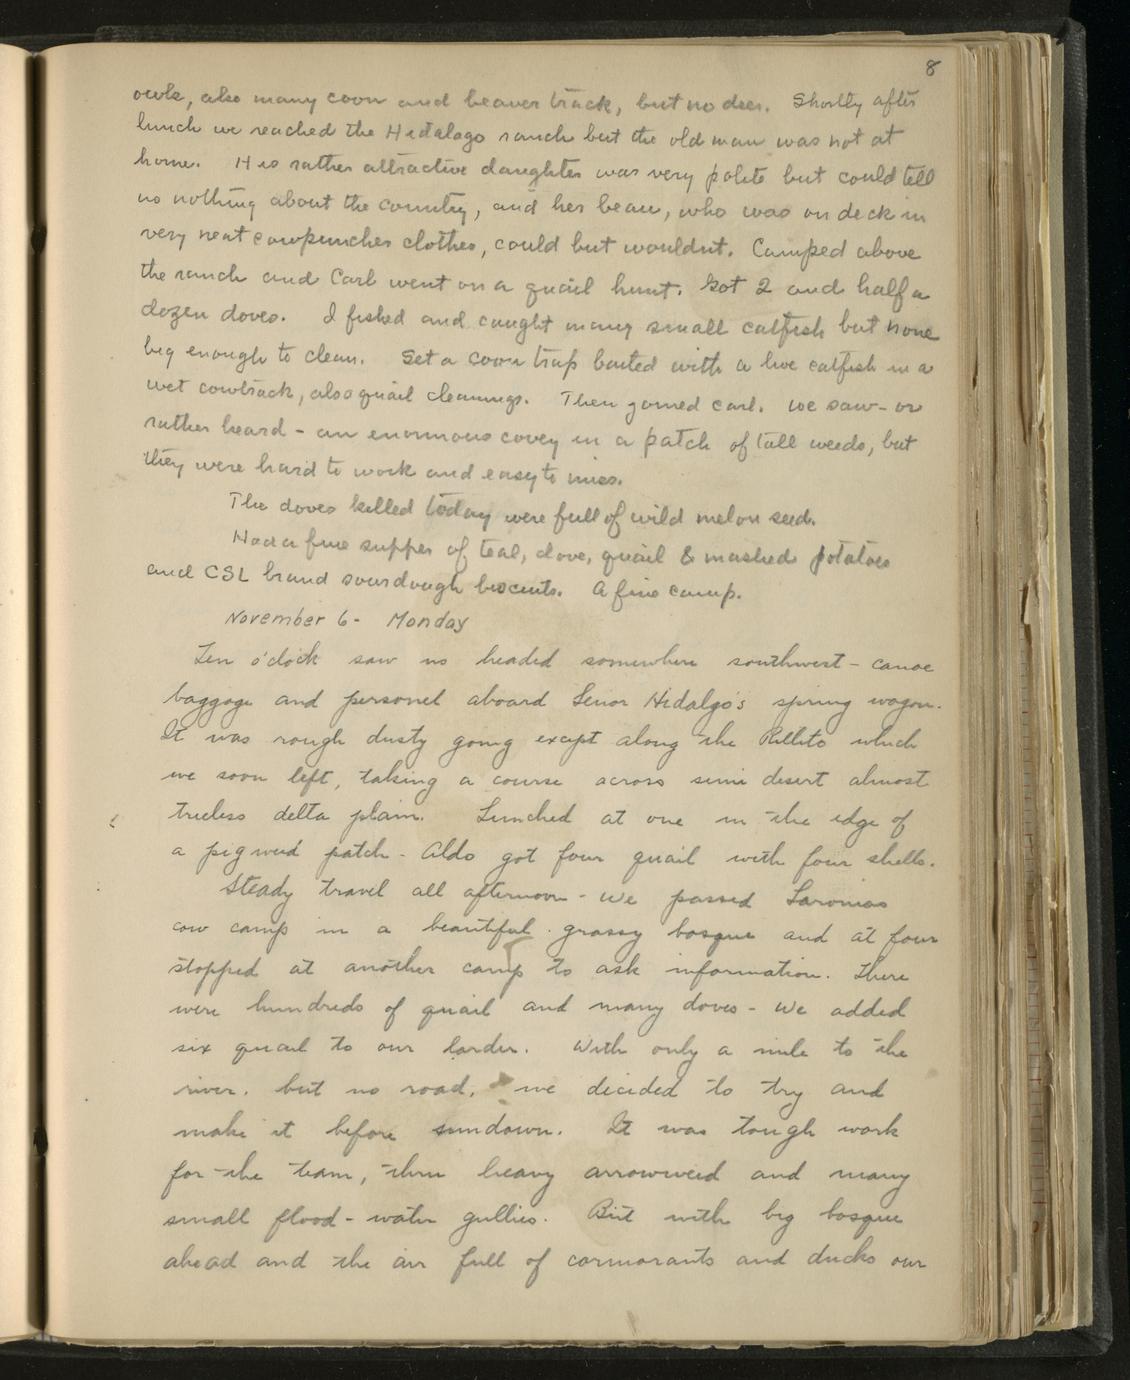 8
owls, also many coon and beaver track, but no deer. Shortly after
lunch we reached the Hidalago ranch but the old man was not at
home. His rather attractive daughter was very polite but could tell
us nothing about the country, and her beau, who was on deck in
very neat cowpuncher clothes, could but wouldnt. Camped above
the ranch and Carl went on a quail hunt. Got 2 and half a
dozen doves. I fished and caught many small catfish but none
big enough to clean. Set a coon trap baited with a live catfish in a
wet cowtrack, also quail cleanings. Then joined Carl. We saw - or
rather heard - an enormous covey in a patch of tall weeds, but
they were hard to work and easy to miss.
The doves killed today were full of wild melon seed.
Had a fine supper of teal, dove, quail & mashed potatoes
and CSL brand sourdough biscuits. A fine camp.
November 6 - Monday
Ten o'clock saw us headed somewhere southwest - canoe
baggage and personel aboard Senor Hidalgo's spring wagon.
It was rough dusty going except along the Rillito which
we soon left, taking a course across semi desert almost
treeless delta plain. Lunched at one in the edge of
a pigweed patch - Aldo got four quail with four shells.
Steady travel all afternoon - we passed
cow camp in a beautiful grassy bosque and at four
stopped at another camp to ask information. There
were hundreds of quail and many doves - we added
six quail to our larder. With only a mile to the
river, but no road, we decided to try and
make it before sundown. It was tough work
for the team, thru heavy arrowweed and many
small flood-water gullies. But with big bosque
ahead and the air full of cormorants and ducks our